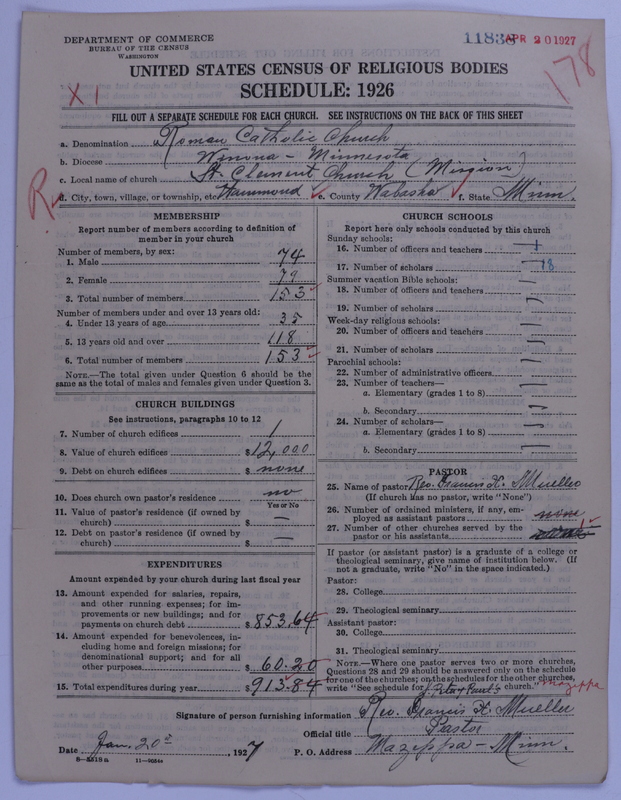 DEPARTMENT OF COMMERCE
BUREAU OF THE CENSUS
WASHINGTON
11838 APR 20 1927
178
X 1
UNITED STATES CENSUS OF RELIGIOUS BODIES
SCHEDULE: 1926
FILL OUT A SEPARATE SCHEDULE FOR EACH CHURCH. SEE INSTRUCTIONS ON THE BACK OF THIS SHEET
a. Denomination Roman Catholic Church
b. Diocese Winona - Minnesota
c. Local name of church St. Clement Church (Mission)
R
d. City, town, village, or township, etc Hammond e. County Wabasha f. State Minn.
MEMBERSHIP
Report number of members according to definition of member in your church
Number of members, by sex:
1. Male 74
2. Female 79
3. Total number of members 153
Number of members under and over 13 years old:
4. Under 13 years of age 35
5. 13 years old and over 118
6. Total number of members 153
NOTE.—The total given under Question 6 should be the
same as the total of males and females given under Question 3.
CHURCH BUILDINGS
See instructions, paragraphs 10 to 12
7. Number of church edifices 1
8. Value of church edifices $12,000
9. Debt on church edifices $ none
10. Does church own pastor's residence no
Yes or No
11. Value of pastor's residence (if owned by
church) $ —
12. Debt on pastor's residence (if owned by
church) $ —
EXPENDITURES
Amount expended by your church during last fiscal year
13. Amount expended for salaries, repairs,
and other running expenses; for im-
provements or new buildings; and for
payments on church debt $ 853.64
14. Amount expended for benevolences, in-
cluding home and foreign missions; for
denominational support; and for all
other purposes $ 60.20
15. Total expenditures during year $ 913.84
CHURCH SCHOOLS
Report here only schools conducted by this church
Sunday schools:
16. Number of officers and teachers 1
17. Number of scholars 18
Summer vacation Bible schools:
18. Number of officers and teachers —
19. Number of scholars —
Week-day religious schools:
20. Number of officers and teachers —
21. Number of scholars —
Parochial schools:
22. Number of administrative officers —
23. Number of teachers—
a. Elementary (grades 1 to 8) —
b. Secondary —
24. Number of scholars—
a. Elementary (grades 1 to 8) —
b. Secondary —
PASTOR
25. Name of pastor Rev. Francis X. Mueller
(If church has no pastor, write "None")
26. Number of ordained ministers, if any, em-
ployed as assistant pastors none
27. Number of other churches served by the
pastor or his assistants 1
If pastor (or assistant pastor) is a graduate of a college or
theological seminary, give name of institution below. (If
not a graduate, write "No" in the space indicated.)
Pastor:
28. College
29. Theological seminary
Assistant pastor:
30. College
31. Theological seminary
NOTE.—Where one pastor serves two or more churches,
Questions 28 and 29 should be answered only on the schedule
for one of the churches; on the schedules for the other churches,
write "See schedule for Peter & Paul's church." Mazeppa
Signature of person furnishing information Rev. Francis X. Mueller
Official title Pastor
Date Jan. 20th, 1927 P. O. Address Mazeppa - Minn.
8—5218a 11—9024a